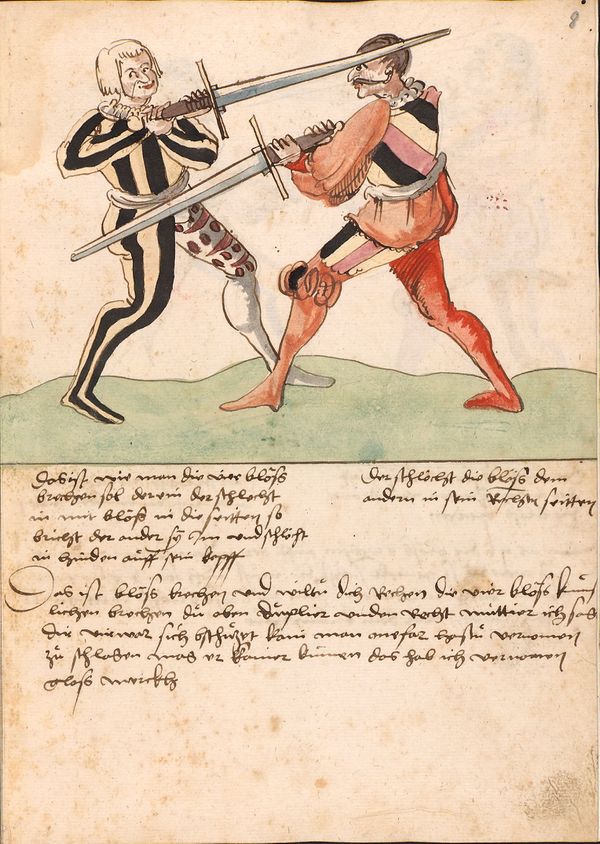 8
Das ist wie man die vier blöss
brechen sol der ein der schlecht
in mit blöss in die seitten so
bricht der ander sy im und schlecht
in hinden auff sein kopff
Der schlecht die blöss dem
andern in sein rechten seitten
Das ist blöss brechen und wiltu dich rechen die vier blöss kunst
lichen brechen du oben duplier unden recht muttier ich sag
die vierwar sich schützt kain man one far hastu vernomen
zu schlagen mag er kainer kumen das hab ich vernomen
gloss merckh